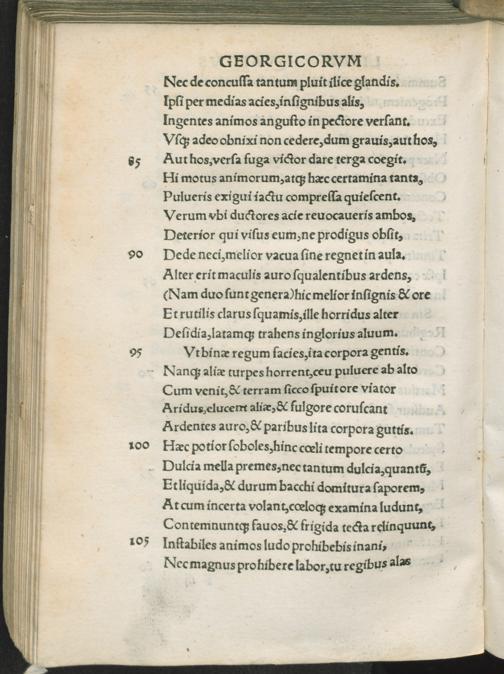 GEORGICORVM
Nec de concussa tantum pluit ilice glandis.
Ipsi per medias acies, insignibus alis,
Ingentes animos angusto in pectore versant.
Vsq; adeo obnixi non cedere, dum grauis, aut hos,
85 Aut hos, versa fuga victor dare terga coegit.
Hi motus animorum, atq; hæc certamina tanta,
Pulueris exigui iactu compressa quiescent.
Verum vbi ductores acie reuocaueris ambos,
Deterior qui visus eum, ne prodigus obsit,
90 Dede neci, melior vacua sine regnet in aula.
Alter erit maculis auro squalentibus ardens,
(Nam duo sunt genera) hic melior insignis & ore
Et rutilis clarus squamis, ille horridus alter
Desidia, latamq; trahens inglorius aluum.
95 Vt binæ regum facies, ita corpora gentis.
Nanq; aliæ turpes horrent, ceu puluere ab alto
Cum venit, & terram sicco spuit ore viator
Aridus, elucent aliæ, & fulgore coruscant
Ardentes auro, & paribus lita corpora guttis.
100 Hæc potior soboles, hinc cœli tempore certo
Dulcia mella premes, nec tantum dulcia, quantũ,
Et liquida, & durum bacchi domitura saporem,
At cum incerta volant, cœloq; examina ludunt,
Contemnuntq; fauos, & frigida tecta relinquunt,
105 Instabiles animos ludo prohibebis inani,
Nec magnus prohibere labor, tu regibus alas